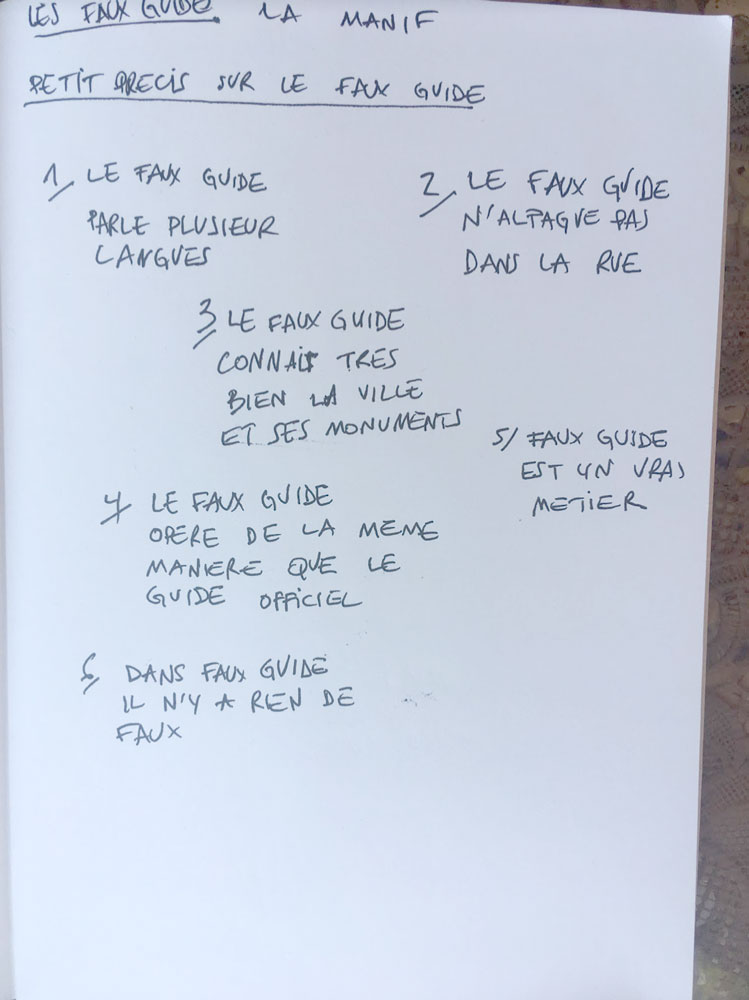 LES FAUX GUIDE. LA MANIF
PETIT PRECIS SUR LE FAUX GUIDE
1/ LE FAUX GUIDE
PARLE PLUSIEUR
LANGUES
2/ LE FAUX GUIDE
N'ALPAGUE PAS
DANS LA RUE
3/ LE FAUX GUIDE
CONNAIT TRES
BIEN LA VILLE
ET SES MONUMENTS
4/ LE FAUX GUIDE
OPERE DE LA MEME
MANIERE QUE LE
GUIDE OFFICIEL
5/ FAUX GUIDE
EST UN VRAI
METIER
6/ DANS FAUX GUIDE
IL N'Y A RIEN DE
FAUX